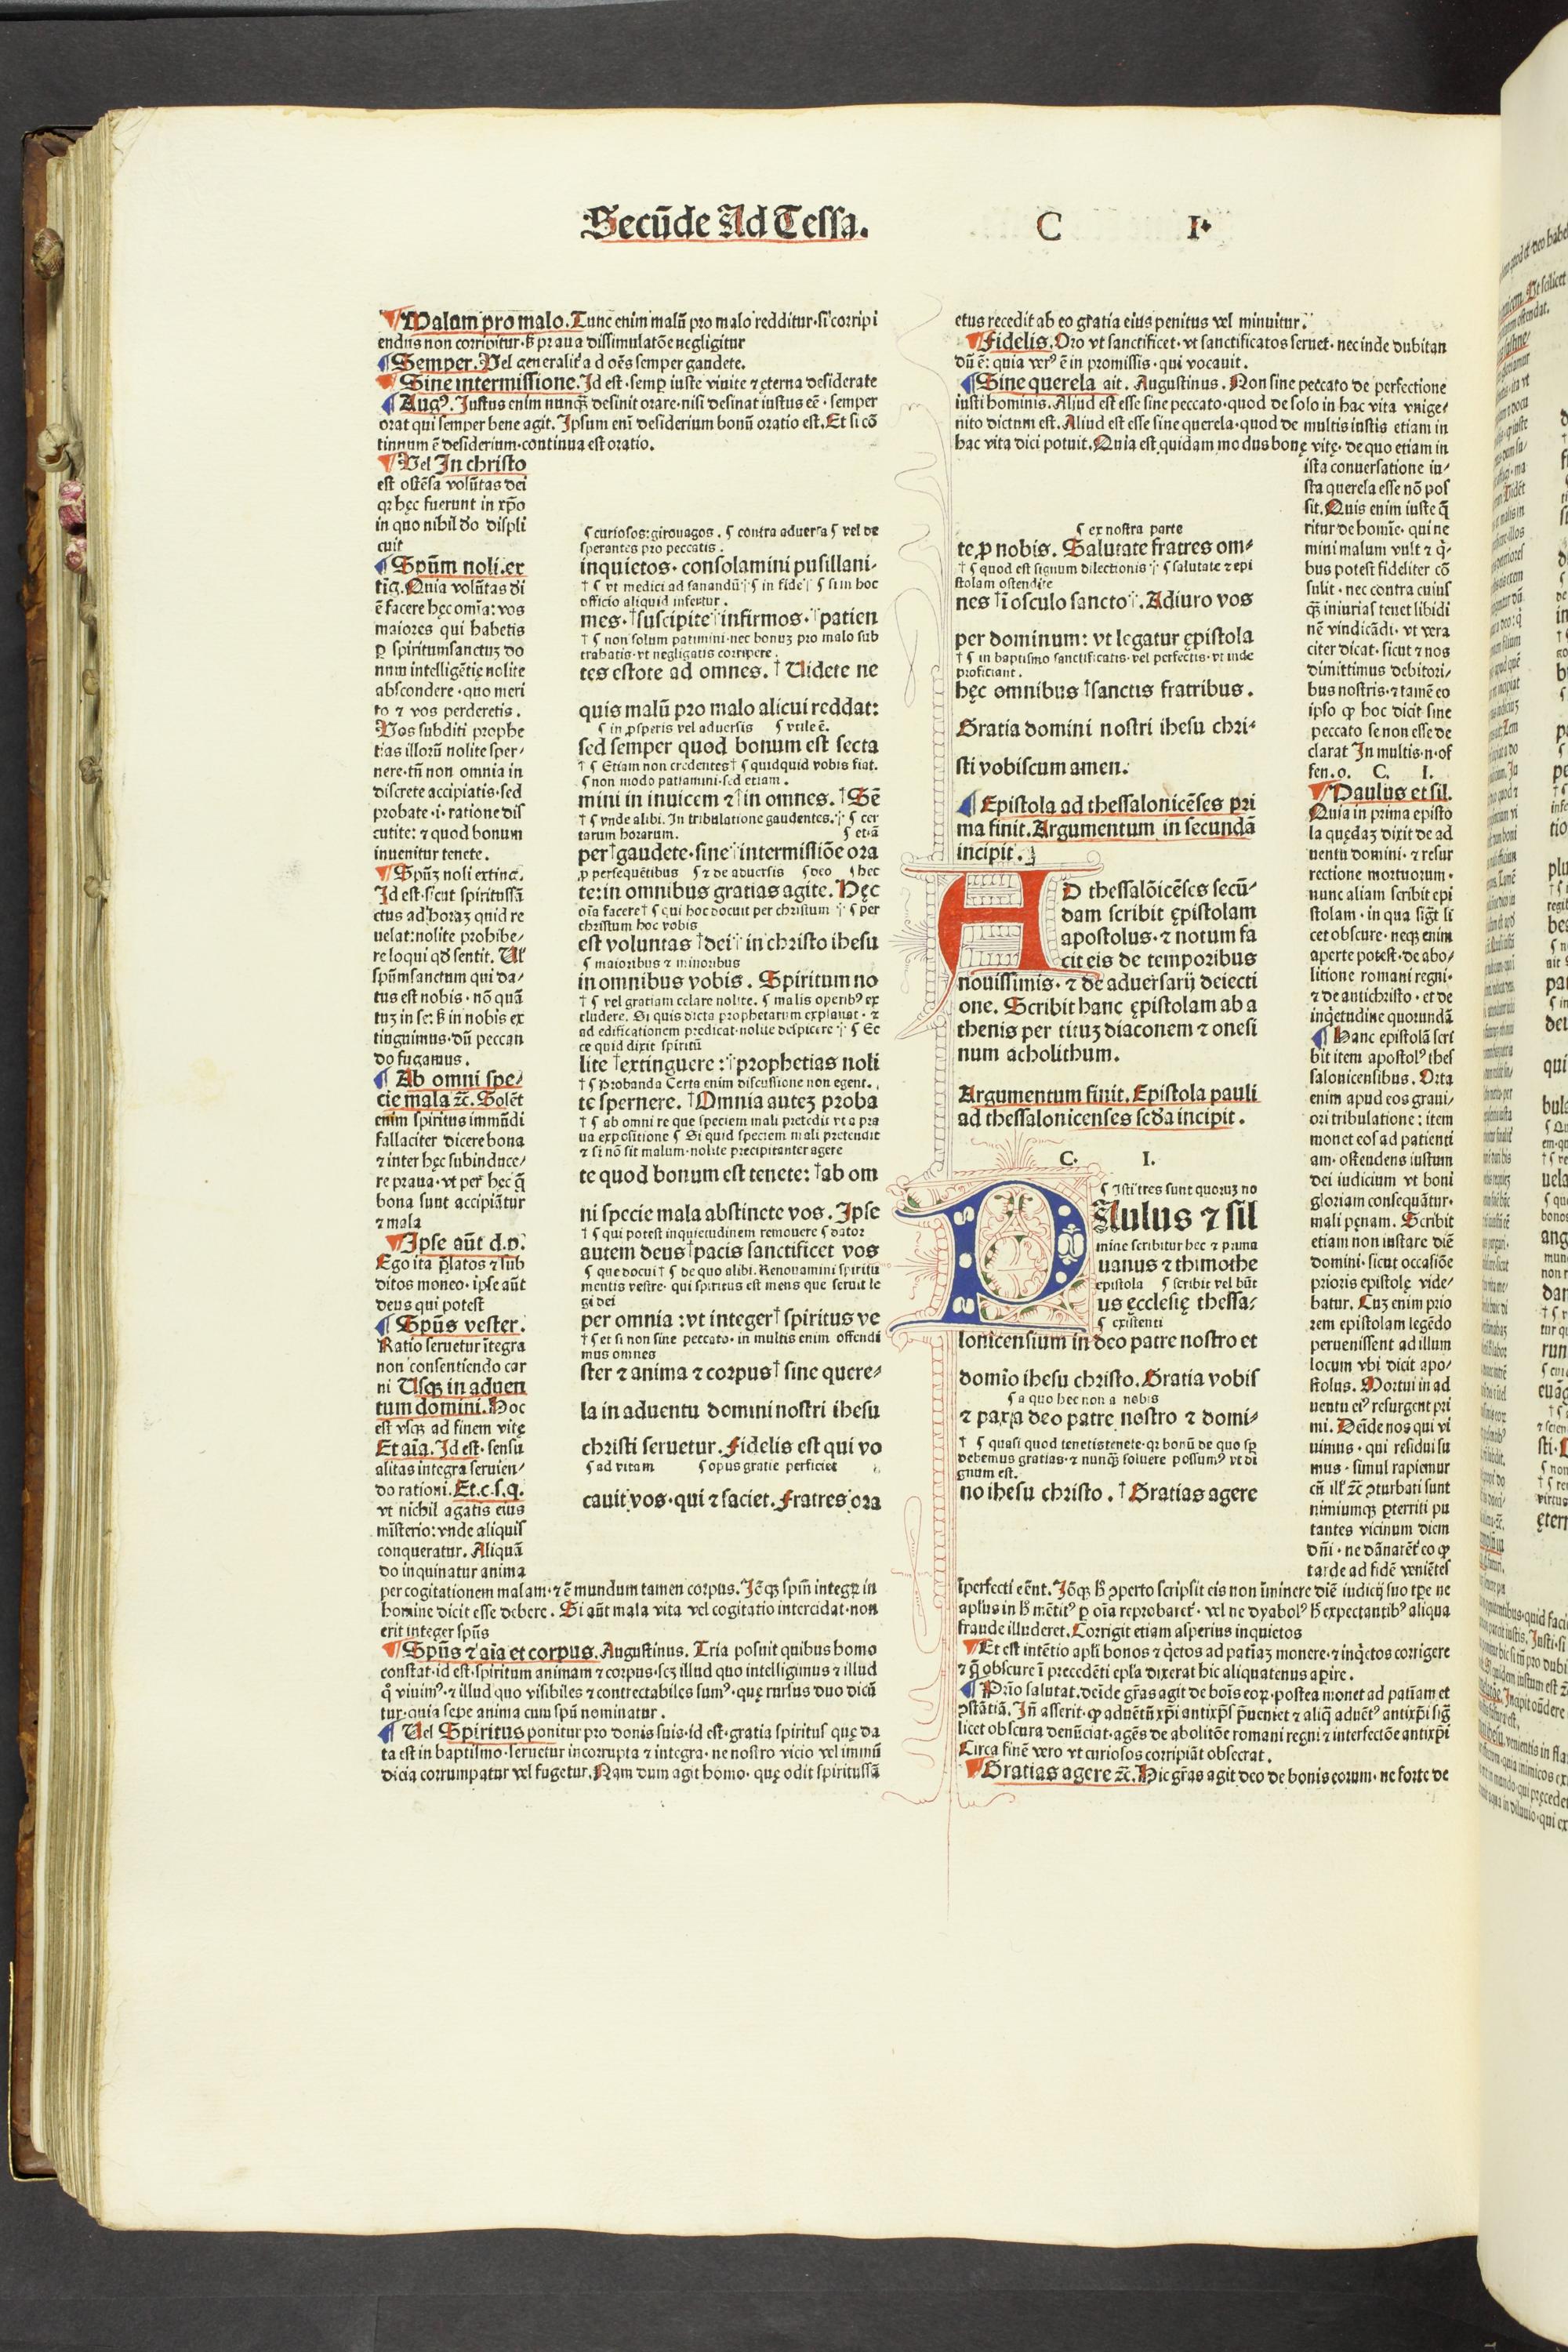 Secūde Ad Tessa.
C I.
Malum pro malo. Tunc enim malū pro malo redditur·si corripi
endus non corripitur·ꝫ praua dissimulatōe negligitur
Semper. Vel generalit̛ ad oēs semper gaudete.
Sine intermissione. Id est·semp̱ iuste viuite ⁊ ęterna desiderate
Augꝰ. Iustus enim nunq̄ȝ desinit orare·nisi desinat iustus eē·semper
orat qui semper bene agit. Ipsum eni desiderium bonū oratio est. Et si cō
tinuum ē desiderium·continua est oratio.
Vel In christo
est ostēsa volūtas dei
qꝛ hęc fuerunt in xp̄o
in quo nihil do displi
cuit
Spūm noli.ex
tīg. Quia volūtas di
ē facere hęc omīa: vos
maiores qui habetis
ꝑ spiritumsanctuȝ do
num intelligētię nolite
abscondere·quo meri
to ⁊ vos perderetis.
Vos subditi prophe
tias illorū nolite sper/
nere·tn̄ non omnia in
discrete accipiatis·sed
probate·i·ratione dis
cutite: ⁊ quod bonum
inuenitur tenete.
Spūȝ noli extinc.
Id est·sicut spiritussā
ctus ad horaȝ quid re
uelat: nolite prohibe/
re loqui qd̄ sentit. Vl̛
spūmsanctum qui da/
tus est nobis·nō quā
tuȝ in se: ꝫ in nobis ex
tinguimus·dū peccan
do fugamus.
Ab omni spe/
cie mala ⁊c̄. Solēt
enim spiritus immūdi
fallaciter dicere bona
⁊ inter hęc subinduce/
re praua·vt per hęc q̄
bona sunt accipiātur
⁊ mala
Ipse aūt d.p.
Ego ita p̄latos ⁊ sub
ditos moneo·ipse aūt
deus qui potest
Spūs vester.
Ratio seruetur ītegra
non consentiendo car
ni Vsqȝ in aduen
tum domini. Hoc
est vsqȝ ad finem vitę
Et aīa. Id est·sensu
alitas integra seruien/
do rationi. Et.c.s.q.
vt nichil agatis eius
mīsterio: vnde aliquis
conqueratur. Aliquā
do inquinatur anima
per cogitationem malam·⁊ ē mundum tamen corpus. Iōqȝ spm̄ integꝝ in
homine dicit esse debere. Si aūt mala vita vel cogitatio intercidat·non
erit integer spūs
Spūs ⁊ aīa et corpus. Augustinus. Tria posuit quibus homo
constat·id est·spiritum animam ⁊ corpus·scȝ illud quo intelligimus ⁊ illud
q̊ viuimꝰ·⁊ illud quo visibiles ⁊ contrectabiles sumꝰ·quę rursus duo dicū
tur·quia sepe anima cum spū nominatur.
Vel Spiritus ponitur pro donis suis·id est·gratia spiritus quę da
ta est in baptismo·seruetur incorrupta ⁊ integra·ne nostro vicio vel iminū
dicia corrumpatur vel fugetur. Nam dum agit homo·quę odit spiritussā
¶ curiosos: girouagos. ¶ contra aduersa ¶ vel de
sperantes pro peccatis.
inquietos·consolamini pusillani-
† ¶ vt medici ad sanandū † ¶ in fide † ¶ si in hoc
officio aliquid infertur.
mes·†suscipite†infirmos·†patien
† ¶ non solum patimini·nec bonuȝ pro malo sub
trahatis·vt negligatis corripere.
tes estote ad omnes. † Uidete ne
quis malū pro malo alicui reddat:
¶ in ꝓsperis vel aduersis ¶ vtile ē.
sed semper quod bonum est secta
† ¶ Etiam non credentes † ¶ quidquid vobis fiat.
¶ non modo patiamini·sed etiam.
mini in inuicem ⁊†in omnes. †Sē
† ¶ vnde alibi. In tribulatione gaudentes. † ¶ cer
tarum horarum. ¶ etiā
per†gaudete·sine†intermissiōe ora
ꝓ persequētibus ¶ ⁊ de aduersis ¶ deo ¶ hec
te: in omnibus gratias agite. Hęc
oīa facere † ¶ qui hoc docuit per christum † ¶ per
christum hoc vobis
est voluntas †dei†in christo ihesu
¶ maioribus ⁊ minoribus
in omnibus vobis. Spiritum no
† ¶ vel gratiam celare nolite. ¶ malis operibꝰ ex
cludere. Si quis dicta prophetarum explanat·⁊
ad edificationem predicat·nolite despicere † ¶ Ec
ce quid dixit spiritū
lite †extinguere:†prophetias noli
† ¶ Probanda Certa enim discussione non egent.
te spernere. †Omnia auteȝ proba
† ¶ ab omni re que speciem mali pretēdit vt a pra
ua expositione ¶ Si quid speciem mali pretendit
⁊ si nō sit malum·nolite precipitanter agere
te quod bonum est tenete: †ab om
ni specie mala abstinete vos. Ipse
† ¶ qui potest inquietudinem remouere ¶ dator
autem deus†pacis sanctificet vos
¶ que docui † ¶ de quo alibi. Renouamini spiritu
mentis vestre· qui spiritus est mens que seruit le
gi dei
per omnia: vt integer† spiritus ve
† ¶ et si non sine peccato·in multis enim offendi
mus omnes
ster ⁊ anima ⁊ corpus† sine quere-
la in aduentu domini nostri ihesu
christi seruetur. Fidelis est qui vo
¶ ad vitam ¶ opus gratie perficiet
cauit vos·qui ⁊ faciet. Fratres ora
etus recedit ab eo gr̄atia eius penitus vel minuitur.
Fidelis. Oro vt sanctificet·vt sanctificatos seruet·nec inde dubitan
dū ē: quia verꝰ ē in promissis·qui vocauit.
Sine querela ait. Augustinus. Non sine peccato de perfectione
iusti hominis. Aliud est esse sine peccato·quod de solo in hac vita vnige/
nito dictum est. Aliud est esse sine querela·quod de multis iustis etiam in
hac vita dici potuit. Quia est quidam modus bonę vitę·de quo etiam in
ista conuersatione iu/
sta querela esse nō pos
sit. Quis enim iuste q̄
ritur de homīe·qui ne
mini malum vult ⁊ q̇-
bus potest fideliter cō
sulit·nec contra cuius
q̄ȝ iniurias tenet libidi
nē vindicādi·vt vera
citer dicat·sicut ⁊ nos
dimittimus debitori/
bus nostris·⁊ tamē eo
ipso ꝙ hoc dicit sine
peccato se non esse de
clarat In multis·n·of
fen.o. C. I.
Paulus et sil.
Quia in prima episto
la quędaȝ dixit de ad
uentu domini·⁊ resur
rectione mortuorum·
nunc aliam scribit epi
stolam·in qua sigt̄ li
cet obscure·neqȝ enim
aperte potest·de abo/
litione romani regni·
⁊ de antichristo·et de
inq̇etudine quorundā
Hanc epistolā scri
bit item apostolꝰ thes
salonicensibus. Orta
enim apud eos graui/
ori tribulatione: item
monet eos ad patienti
am·ostendens iustum
dei iudicium vt boni
gloriam consequātur·
mali pęnam. Scribit
etiam non instare diē
domini·sicut occasiōe
prioris epistolę vide/
batur. Cuȝ enim prio
rem epistolam legēdo
peruenissent ad illum
locum vbi dicit apo/
stolus. Mortui in ad
uentu eiꝰ resurgent pri
mi. Deīde nos qui vi
uimus·qui residui su
mus·simul rapiemur
cū ill̛ ⁊c̄ ꝯturbati sunt
nimiumqȝ ꝑterriti pu
tantes vicinum diem
dn̄i·ne dānarēt̛ eo ꝙ
tarde ad fidē veniētes
te ꝓ nobis. Salutate fratres om-
¶ ex nostra parte
† ¶ quod est signum dilectionis † ¶ salutate ⁊ epi
stolam ostendite
nes †ī osculo sancto†. Adiuro vos
per dominum: vt legatur ępistola
† ¶ in baptismo sanctificatis·vel perfectis·vt inde
proficiant.
hęc omnibus †sanctis fratribus.
Gratia domini nostri ihesu chri-
sti vobiscum amen.
Epistola ad thessalonicēses pri
ma finit. Argumentum in secundā
incipit.
AD thessalōicēses secū-
dam scribit ępistolam
apostolus·⁊ notum fa
cit eis de temporibus
nouissimis·⁊ de aduersarij deiecti
one. Scribit hanc ępistolam ab a
thenis per tituȝ diaconem ⁊ onesi
num acholithum.
Argumentum finit. Epistola pauli
ad thessalonicenses sc̄da incipit.
C. I.
¶ Isti tres sunt quoruȝ no
PAulus ⁊ sil
mine scribitur hec ⁊ prima
uanus ⁊ thimothe
epistola ¶ scribit vel būt
us ęcclesię thessa/
¶ existenti
lonicensium in deo patre nostro et
domīo ihesu christo. Gratia vobis
¶ a quo hec non a nobis
⁊ pax a deo patre nostro ⁊ domi-
† ¶ quasi quod tenetis tenete·qꝛ bonū de quo sꝑ
debemus gratias·⁊ nunq̄ȝ soluere possumꝰ vt di
gnum est.
no ihesu christo. † Gratias agere
īperfecti eēnt. Iōqȝ ꝫ ꝯperto scripsit eis non īminere diē iudicij suo tꝑe ne
aplūs in ꝫ mētit̛ꝰ ꝑ oīa reprobaret̛·vel ne dyabolꝰ ꝫ expectantibꝰ aliqua
fraude illuderet. Corrigit etiam asperius inquietos
Et est intētio apl̄i bonos ⁊ q̇etos ad patīaȝ monere·⁊ inq̇etos corrigere
⁊ q̄ obscure ī precedēti epl̄a dixerat hic aliquatenus aꝑire.
Prīo salutat·deīde gr̄as agit de boīs eoꝝ·postea monet ad patīam et
ꝯstātiā. In̄ asserit·ꝙ aduētū xp̄i antixp̄s p̄ueniet ⁊ aliq̄ aduētꝰ antixp̄i siḡ
licet obscura denūciat·agēs de abolitōe romani regni ⁊ interfectōe antixp̄i
Circa finē vero vt curiosos corripiāt obsecrat.
Gratias agere ⁊c̄. Hic gr̄as agit deo de bonis eorum·ne forte de